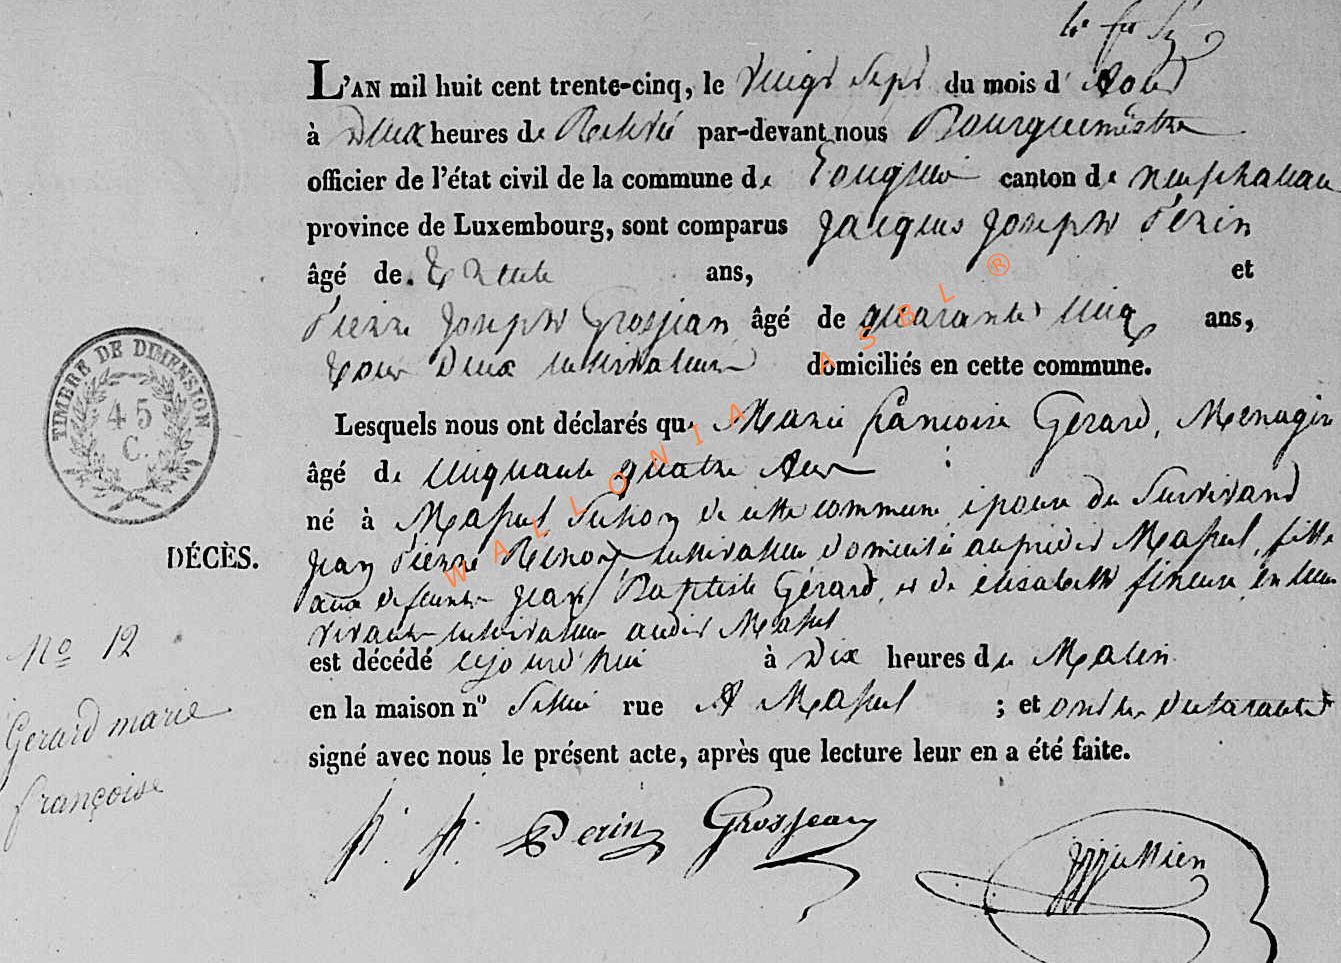 L'AN mil huit cent trente-cinq, le vingt sept du mois d'Aout
à Deux heures de Relevée par-devant nous Bourguemestre
officier de l'état civil de la commune de canton de neufchateau
province de Luxembourg, sont comparus Jacques Joseph Perin
âgé de trente ans, et
Pierre Joseph Grosjean âgé de quarante cinq ans,
tous Deux cultivateurs domiciliés en cette commune.
Lesquels nous ont déclarés que Marie francoise Gerard, Menagere
âgé de cinquante quatre Ans
né à Massul Section de cette commune épouse du Survivant
Jean Pierre cultivateur domicilié au prédit Massul, fille
aux defunts Jean Baptiste Gérard, et de élisabeth en leur
vivant cultivateur audit Massul
est décédé cejourd'hui à Dix heures du Matin
en la maison n° rue A Massul ; et ont les declarants
signé avec nous le présent acte, après que lecture leur en a été faite.
TIMBRE DE DIMENSION
45
C.
DÉCÈS.
N° 12
Gerard marie
françoise
J. J. Perin Grosjean
WALLONIA ASBL ®